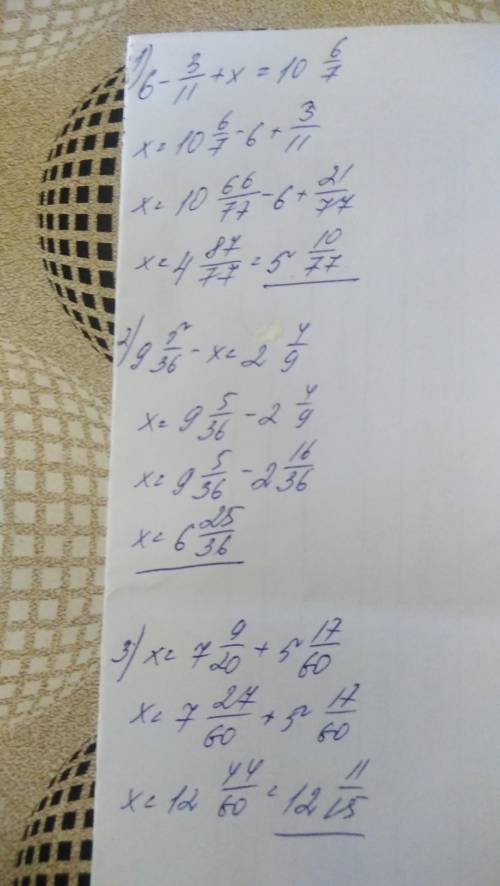 1) 6 - 3/11 + x = 10 6/7
x = 10 6/7 - 6 + 3/11
x = 10 66/77 - 6 + 21/77
x = 4 87/77 = 5 10/77
2) 9 5/36 - x = 2 4/9
x = 9 5/36 - 2 4/9
x = 9 5/36 - 2 16/36
x = 6 25/36
3) x = 7 9/20 + 5 17/60
x = 7 27/60 + 5 17/60
x = 12 44/60 = 12 11/15